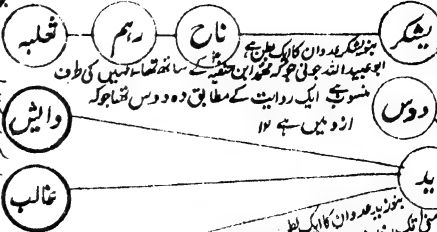 یشکر
ناح
رہم
ثعلبہ
بنو یشکر عدوان کا ایک بطن ہے
ابو عبداللہ جو محمد ابن حنفیہ کے ساتھ تھا۔ انہیں کی طرف
منسوب ہے ایک روایت کے مطابق وہ دوس تھا جو کہ
ازد میں ہے ۱۲
دوس
وایش
غالب
ید
بنو زید عدوان کا ایک